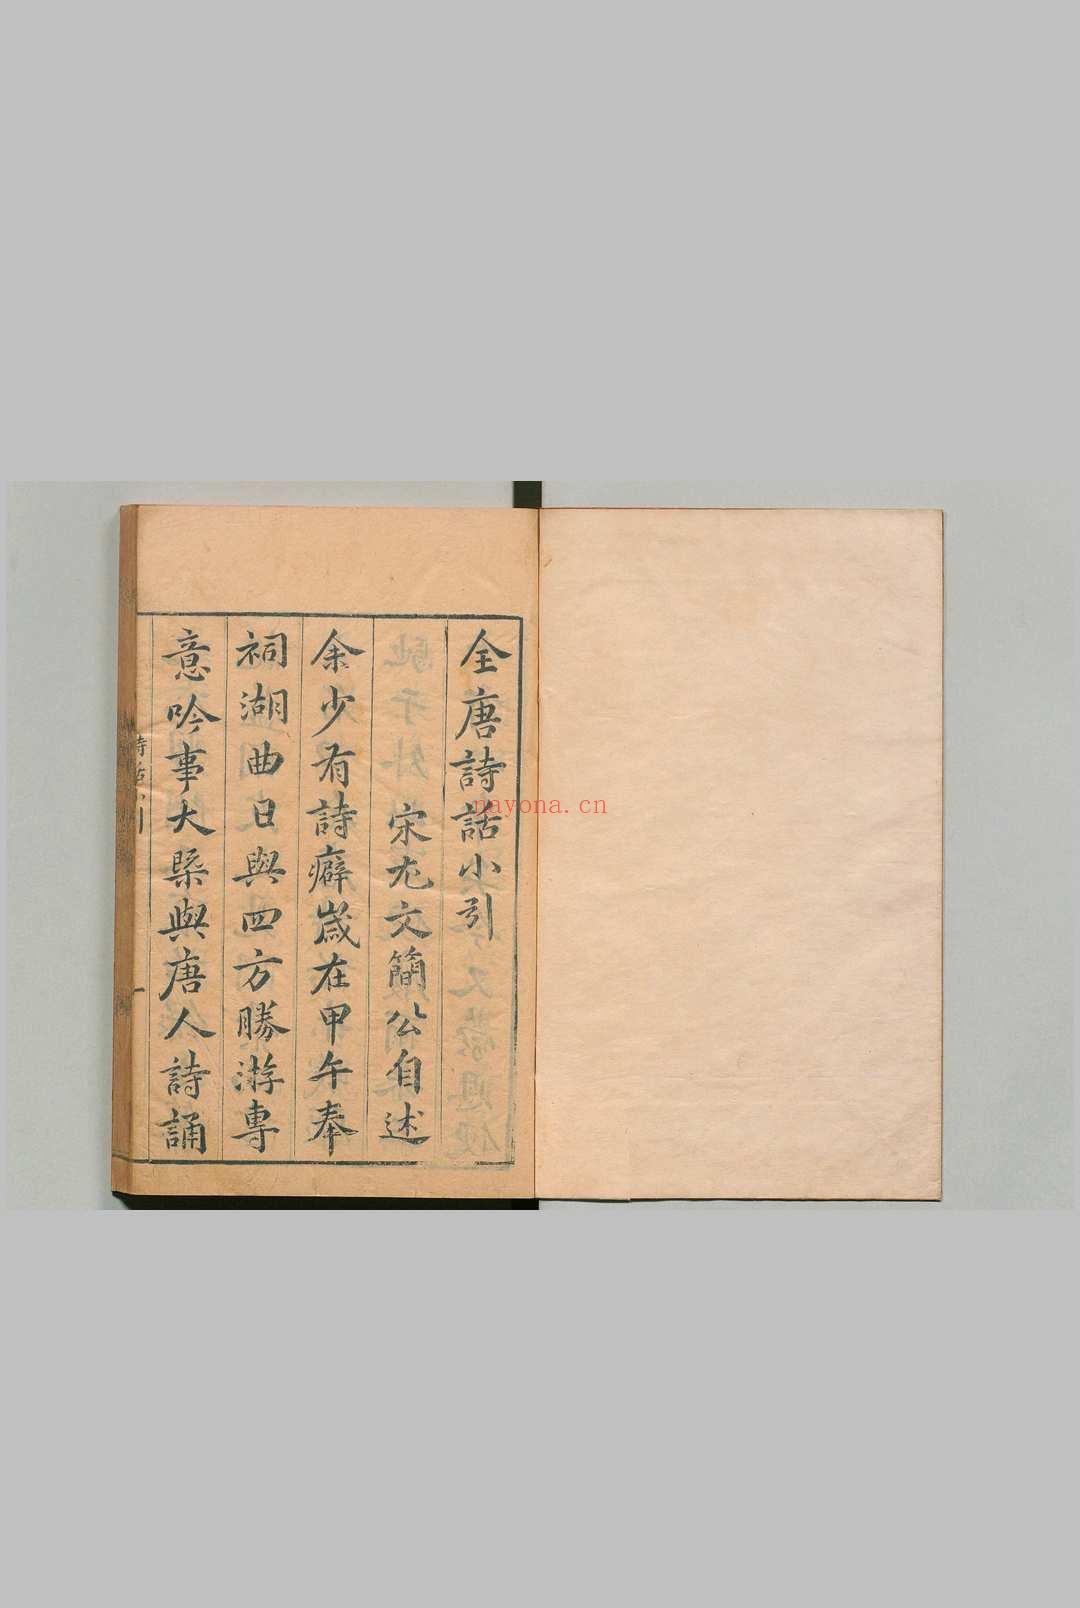 全唐詩話小引
宋尤文簡公自述
余少有詩癖嵗在甲午奉
祠湖曲日與四方勝游專
意吟事大槩與唐人詩誦
詩話小引
一
nayona.cn